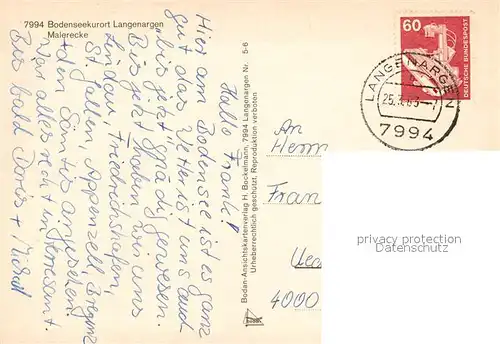 7994 Bodenseekurort Langenargen
Malerecke
Hallo Frank!
Hier am Bodensee ist es ganz
gut das Wetter ist uns auch
bis jetzt gnädig gewesen.
Bis jetzt haben wir uns
Lindau, Friedrichshafen,
St. Gallen, Appenzell, Bregenz
+ den Säntis angesehen.
War alles recht interressant.
Bis bald Doris + Michael
Bodan-Ansichtskartenverlag H. Bockelmann, 7994 Langenargen Nr. 5-6
Urheberrechtlich geschützt, Reproduktion verboten
60
DEUTSCHE BUNDESPOST
LANGENARGEN
25.7.83-
7994
An
Herrn
Fran
4000
privacy protection
by ansichtskartenversand.com